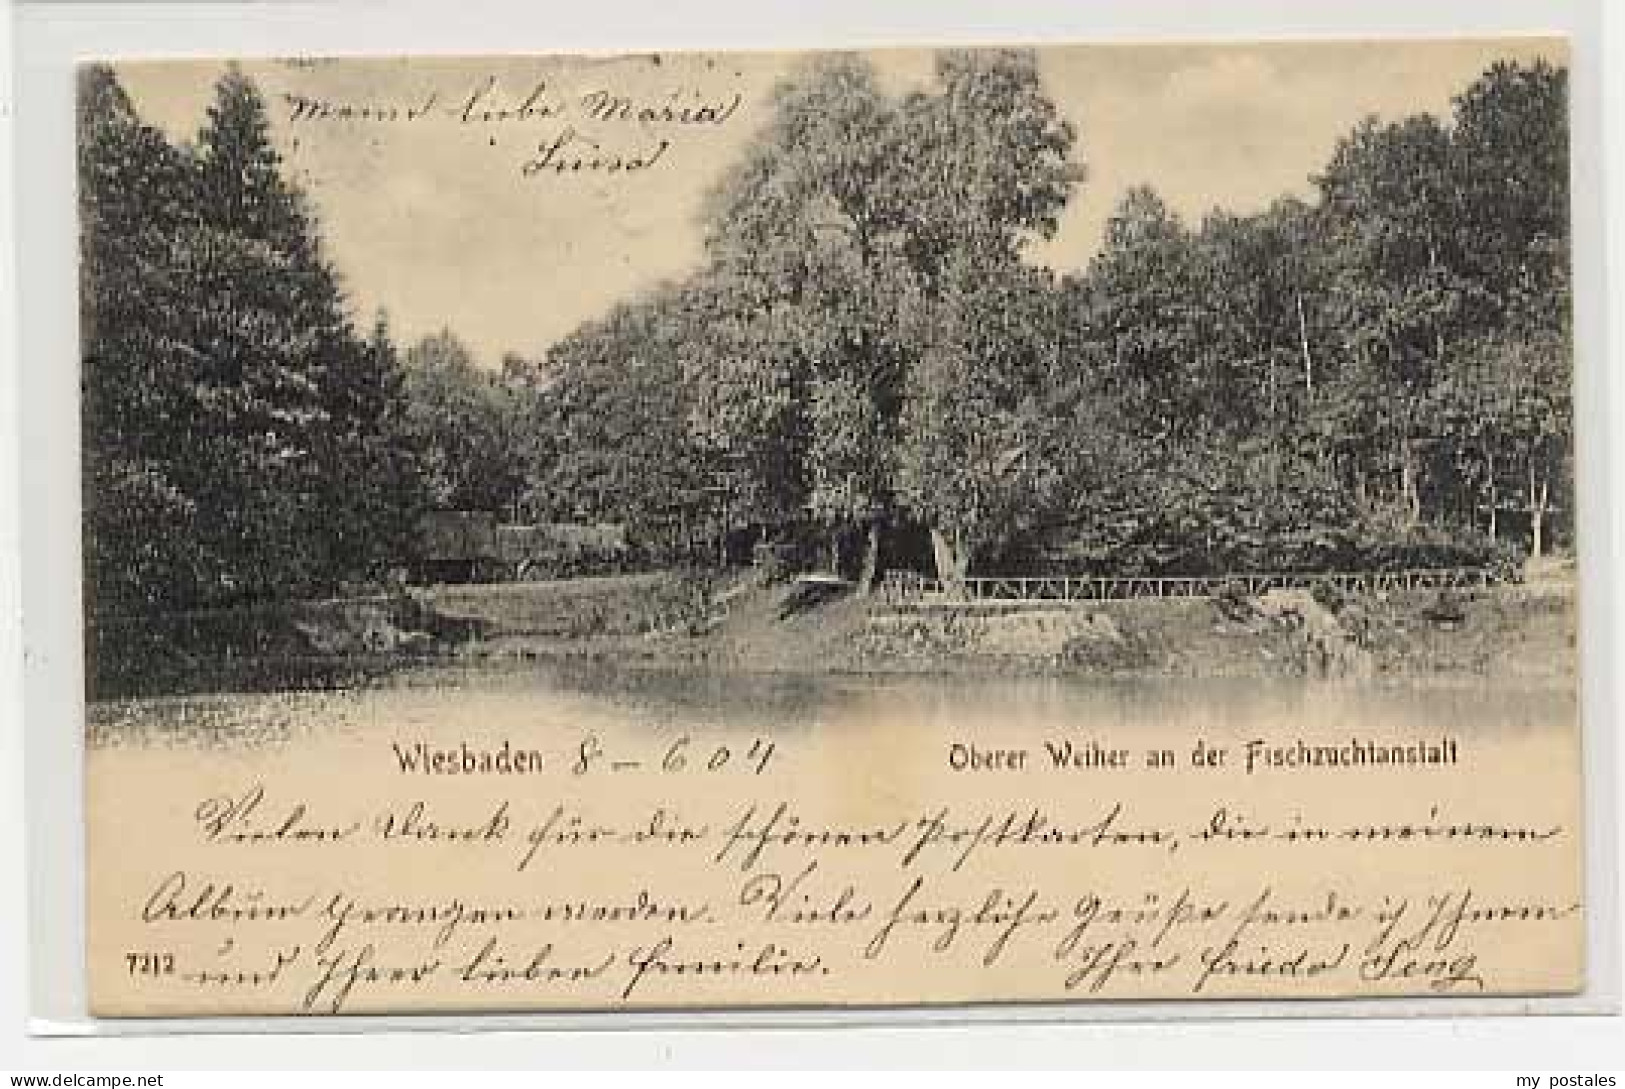 Meine liebe Maria
Luisa
Wiesbaden 8 – 6 04
Oberer Weiher an der Fischzuchtanstalt
Vielen Dank für die schönen Postkarten, die in meinem
Album prangen werden. Viele herzliche Grüße sende ich Ihnen
7212 und Ihrer lieben Familie. Ihre Frieda Seng
www.delcampe.net
my_postales